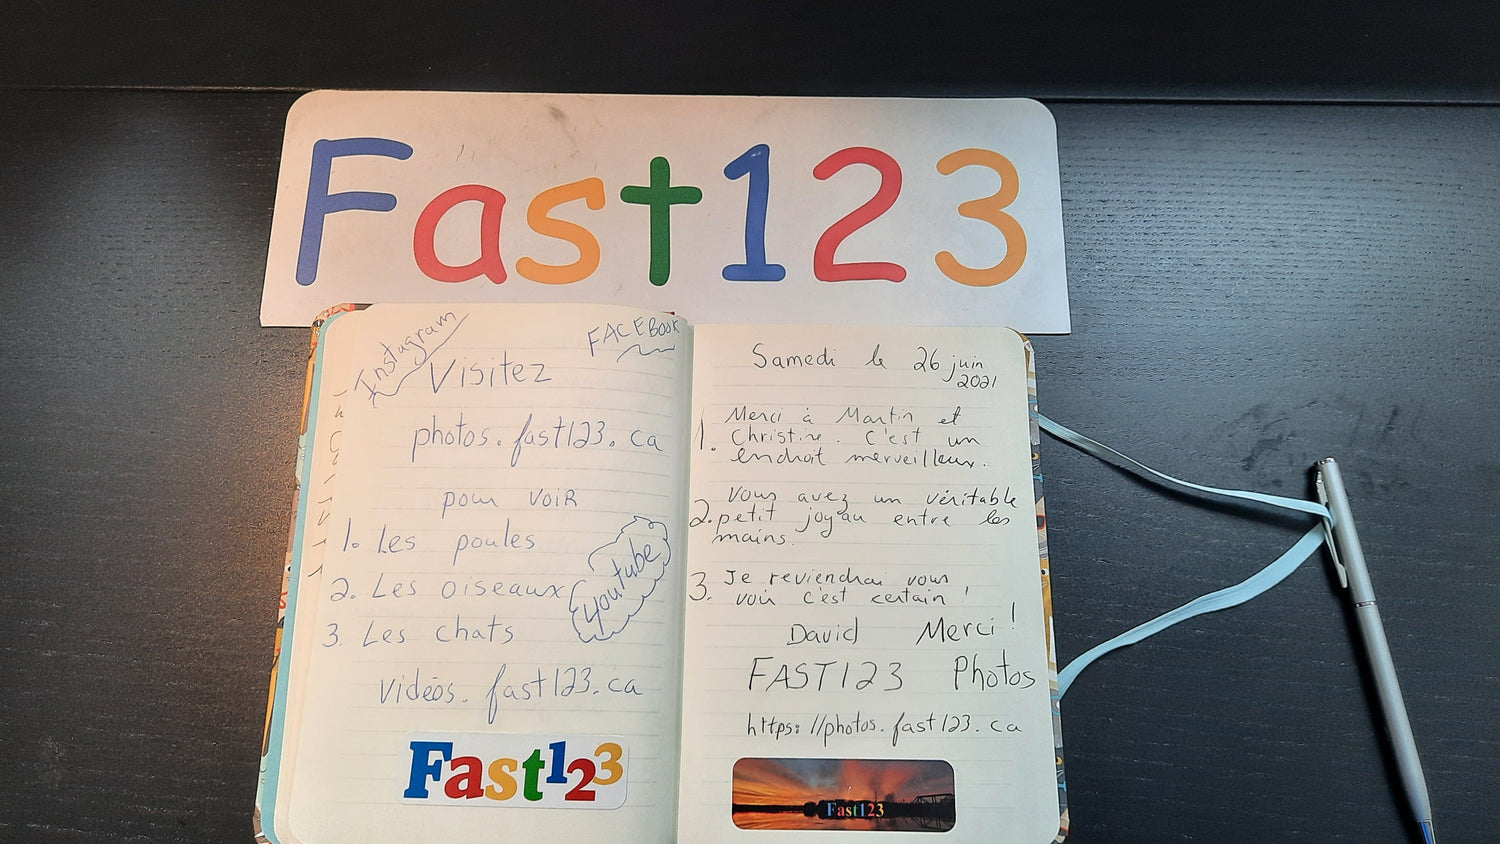 Fast123
Instagram
FACEBOOK
Visitez
photos.fast123.ca
pour voir
1. Les poules
2. Les oiseaux
3. Les chats
Youtube
vidéos.fast123.ca
Fast123
Samedi le 26 juin
2021
1. Merci à Martin et
Christine. C'est un
endroit merveilleux.
2. Vous avez un véritable
petit joyau entre les
mains.
3. Je reviendrai vous
voir c'est certain!
David Merci!
FAST123 Photos
https://photos.fast123.ca
Fast123